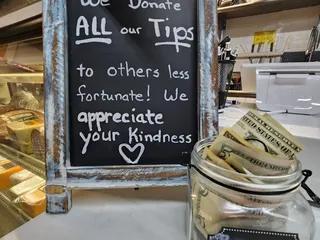 We Donate
ALL our Tips
to others less
fortunate! We
appreciate
your Kindness